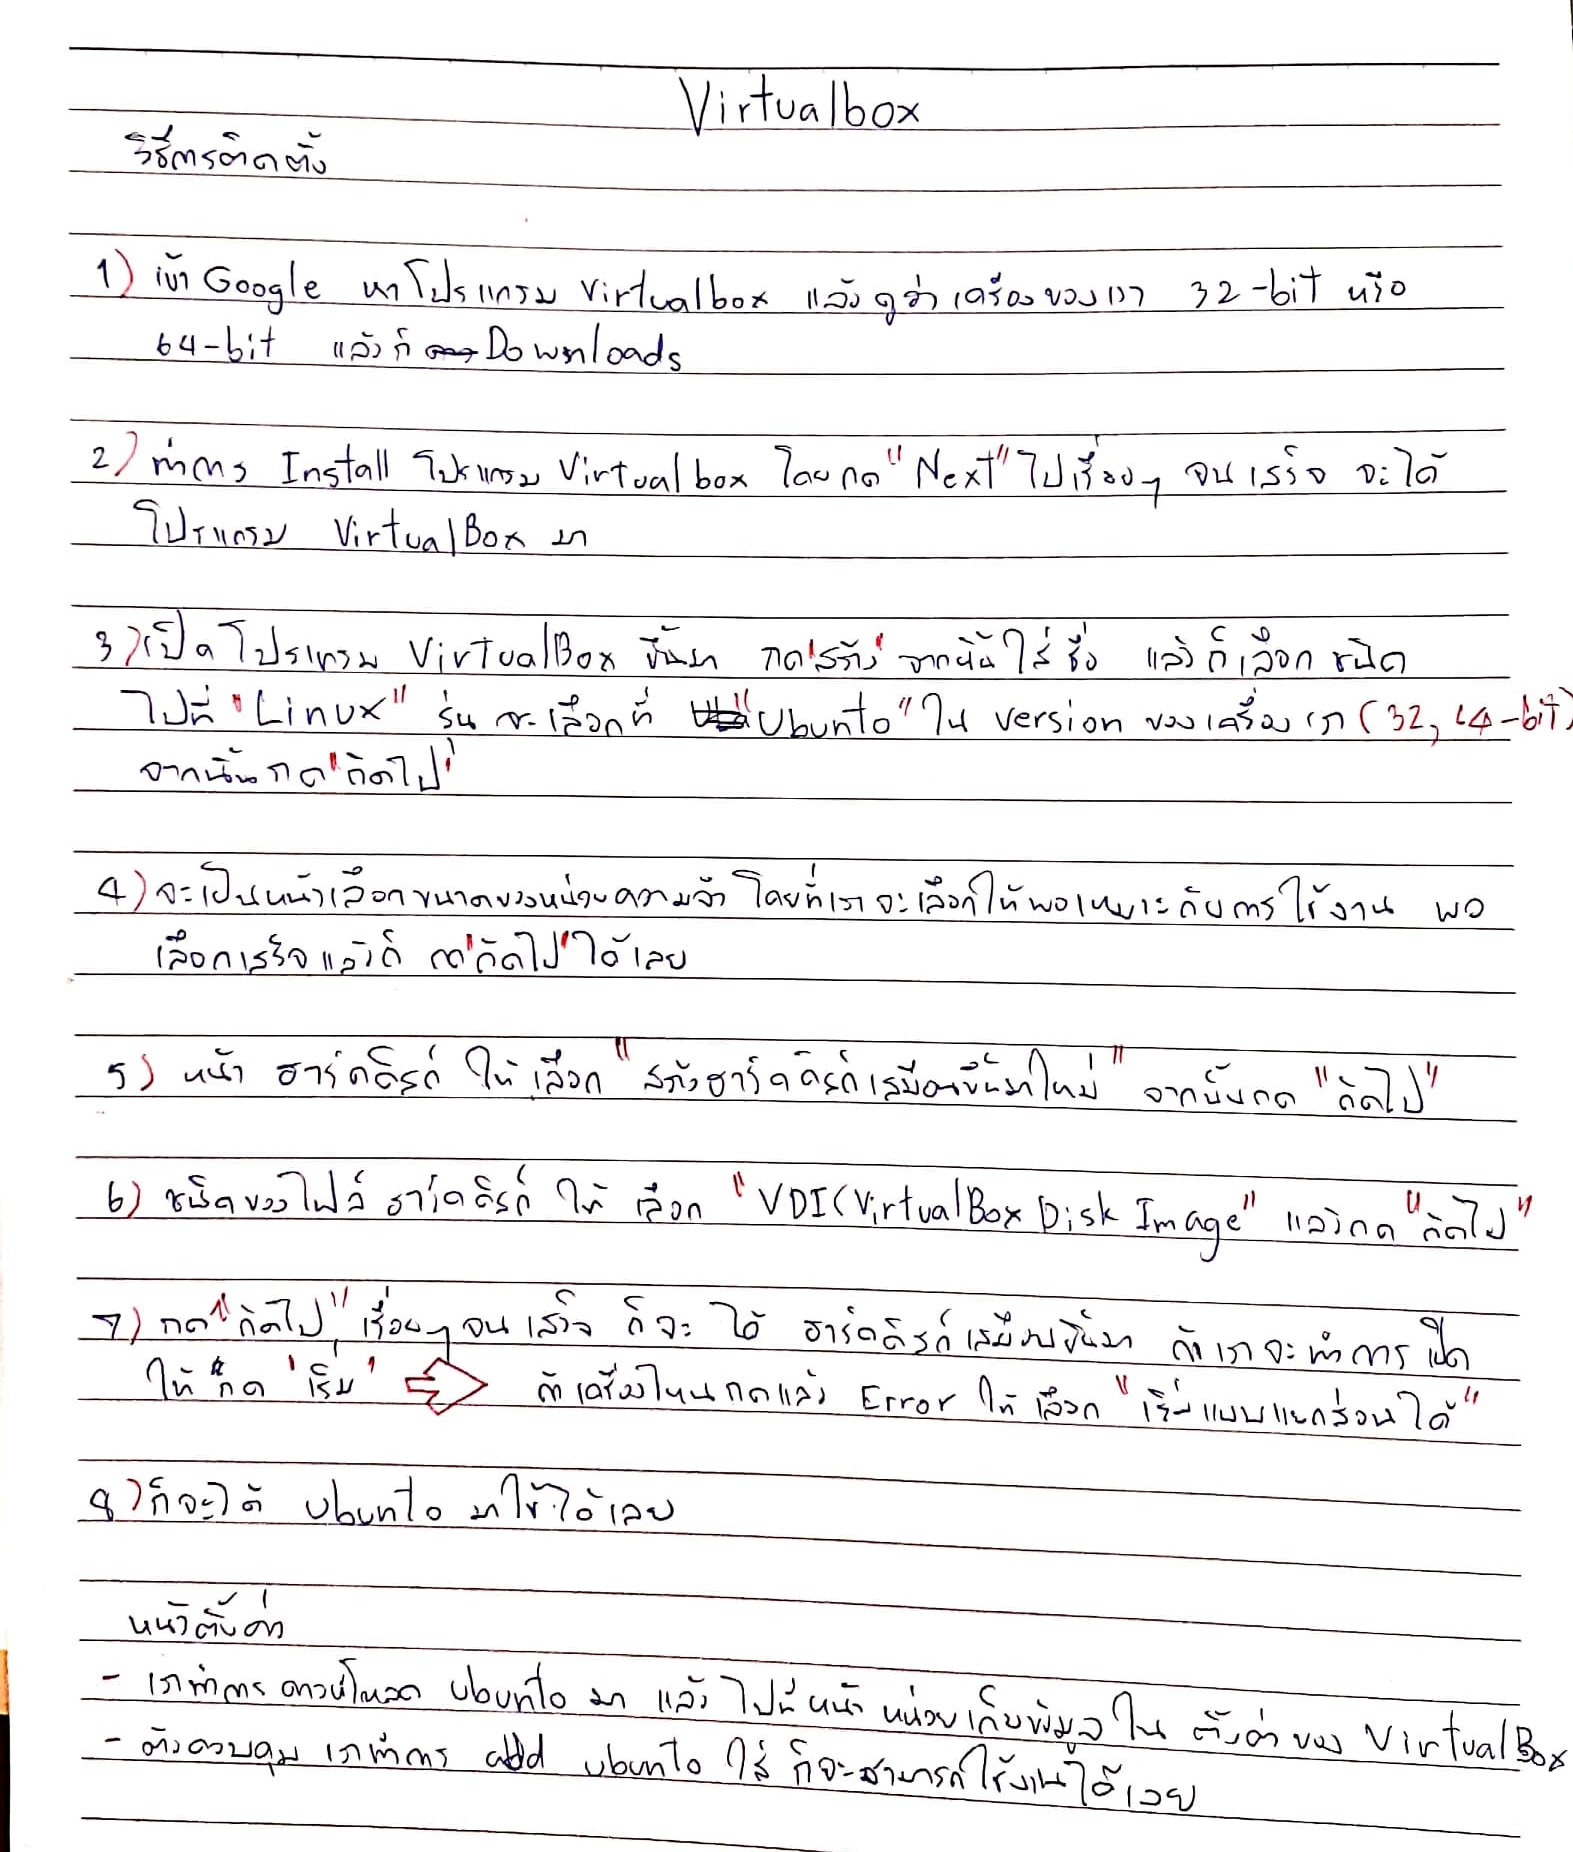 Virtualbox
วิธีการติดตั้ง
1) เข้า Google หาโปรแกรม Virtualbox แล้วดูว่าเครื่องของเรา 32-bit หรือ
64-bit แล้วก็ Downloads
2) ทำการ Install โปรแกรม Virtualbox โดยกด "Next" ไปเรื่อยๆ จนเสร็จ จะได้
โปรแกรม VirtualBox มา
3) เปิดโปรแกรม VirtualBox ขึ้นมา กด"สร้าง" จากนั้นใส่ชื่อ แล้วก็เลือก ชนิด
ไปที่ "Linux" รุ่น จะเลือกที่ "Ubunto" ใน version ของเครื่องเรา (32, 64-bit)
จากนั้นกด"ถัดไป"
4) จะเป็นหน้าเลือกขนาดของหน่วยความจำ โดยที่เราจะเลือกให้พอเหมาะกับการใช้งาน พอ
เลือกเสร็จแล้วก็ กด"ถัดไป"ได้เลย
5) หน้า ฮาร์ดดิรก์ ให้เลือก "สร้างฮาร์ดดิรก์เสมือนขึ้นมาใหม่" จากนั้นกด "ถัดไป"
6) ชนิดของไฟล์ ฮาร์ดดิรก์ ให้ เลือก "VDI(VirtualBox Disk Image" แล้วกด "ถัดไป"
7) กด "ถัดไป" เรื่อยๆ จนเสร็จ ก็จะ ได้ ฮาร์ดดิรก์เสมือนขึ้นมา ถ้าเราจะทำการเปิด
ให้ กด 'เริ่ม' ถ้าเครื่องไหนกดแล้ว Error ให้ เลือก "เริ่มแบบแยกส่วนได้"
8) ก็จะได้ Ubunto มาใช้ได้เลย
หน้าตั้งค่า
- เราทำการ ดาวน์โหลด Ubunto มา แล้ว ไปที่หน้า หน่วยเก็บข้อมูล ใน ตั้งค่า ของ VirtualBox
- ตัวควบคุม เราทำการ add Ubunto ใส่ ก็จะสามารถใช้งานได้เลย